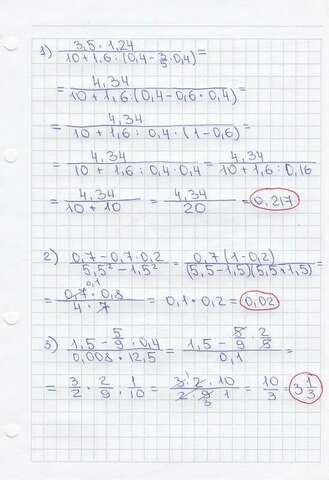 1) 3,5 · 1,24 / 10 + 1,6 : (0,4 - 3/5 · 0,4) =
= 4,34 / 10 + 1,6 : (0,4 - 0,6 · 0,4) =
= 4,34 / 10 + 1,6 : 0,4 · (1 - 0,6) =
= 4,34 / 10 + 1,6 : 0,4 · 0,4 = 4,34 / 10 + 1,6 : 0,16
= 4,34 / 10 + 10 = 4,34 / 20 = 0,217
2) 0,7 - 0,7 · 0,2 / 5,5² - 1,5² = 0,7 (1 - 0,2) / (5,5 - 1,5)(5,5 + 1,5) =
= 0,7 · 0,8 / 4 · 7 = 0,1 · 0,2 = 0,02
3) 1,5 - 5/9 : 0,4 / 0,008 · 12,5 = 1,5 - 5/9 · 2/5 / 0,1 =
= 3/2 · 2/9 : 1/10 = 3 · 2 · 10 / 2 · 9 · 1 = 10/3 = 3 1/3